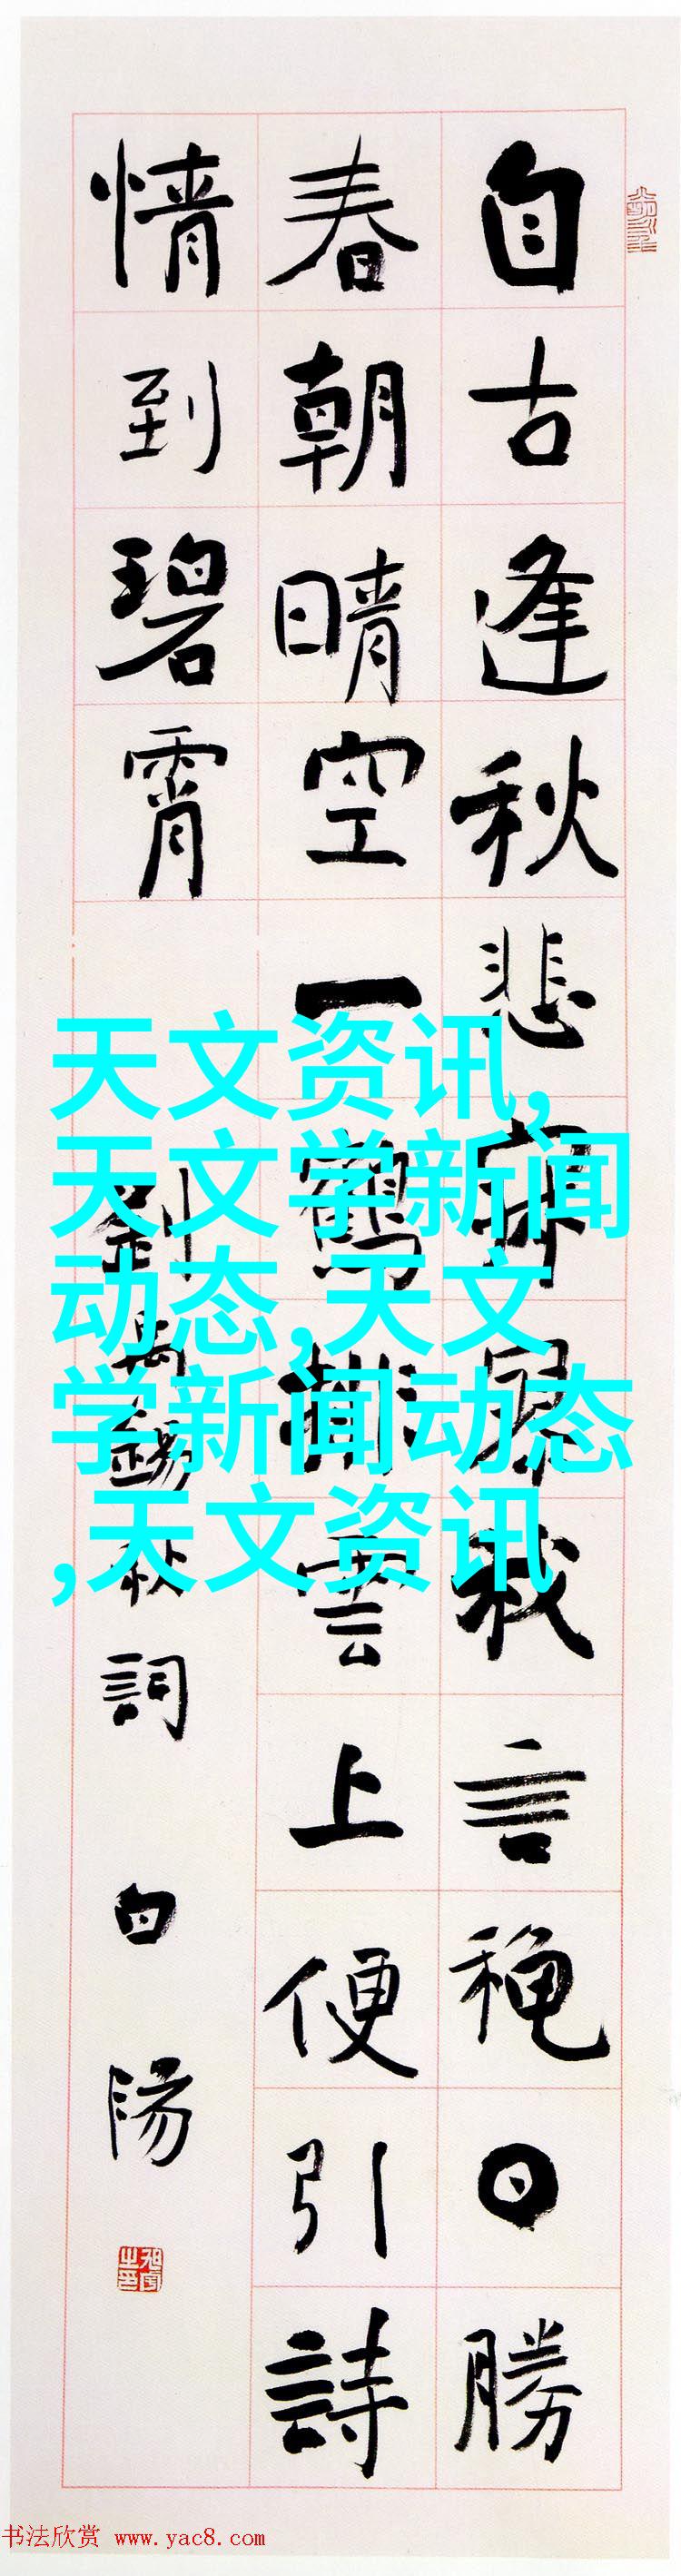 自古逢秋悲寂寥我言穐日勝
春朝晴空一鶴排雲上便引詩
情到碧霄
劉禹錫秋詞 白陽
天文资讯,
天文学新闻
动态,天文
学新闻动态
,天文资讯
书法欣赏 www.yac8.com